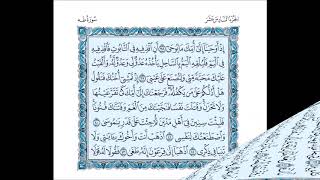 الجزء السادس عشر سورة طه
إِذْ أَوْحَيْنَا إِلَىٰ أُمِّكَ مَا يُوحَىٰ ٣٨ أَنِ ٱقْذِفِيهِ فِي ٱلتَّابُوتِ فَٱقْذِفِيهِ
فِي ٱلْيَمِّ فَلْيُلْقِهِ ٱلْيَمُّ بِٱلسَّاحِلِ يَأْخُذْهُ عَدُوٌّ لِّي وَعَدُوٌّ لَّهُۥ وَأَلْقَيْتُ
عَلَيْكَ مَحَبَّةً مِّنِّي وَلِتُصْنَعَ عَلَىٰ عَيْنِي ٣٩ إِذْ تَمْشِي أُخْتُكَ فَتَقُولُ
هَلْ أَدُلُّكُمْ عَلَىٰ مَن يَكْفُلُهُۥ فَرَجَعْنَٰكَ إِلَىٰ أُمِّكَ كَيْ تَقَرَّ عَيْنُهَا
وَلَا تَحْزَنَ وَقَتَلْتَ نَفْسًا فَنَجَّيْنَٰكَ مِنَ ٱلْغَمِّ وَفَتَنَّٰكَ فُتُونًا
فَلَبِثْتَ سِنِينَ فِي أَهْلِ مَدْيَنَ ثُمَّ جِئْتَ عَلَىٰ قَدَرٍ يَٰمُوسَىٰ ٤٠
وَٱصْطَنَعْتُكَ لِنَفْسِي ٤١ ٱذْهَبْ أَنتَ وَأَخُوكَ بِـَٔايَٰتِي وَلَا
تَنِيَا فِي ذِكْرِي ٤٢ ٱذْهَبَا إِلَىٰ فِرْعَوْنَ إِنَّهُۥ طَغَىٰ ٤٣ فَقُولَا لَهُۥ قَوْلًا